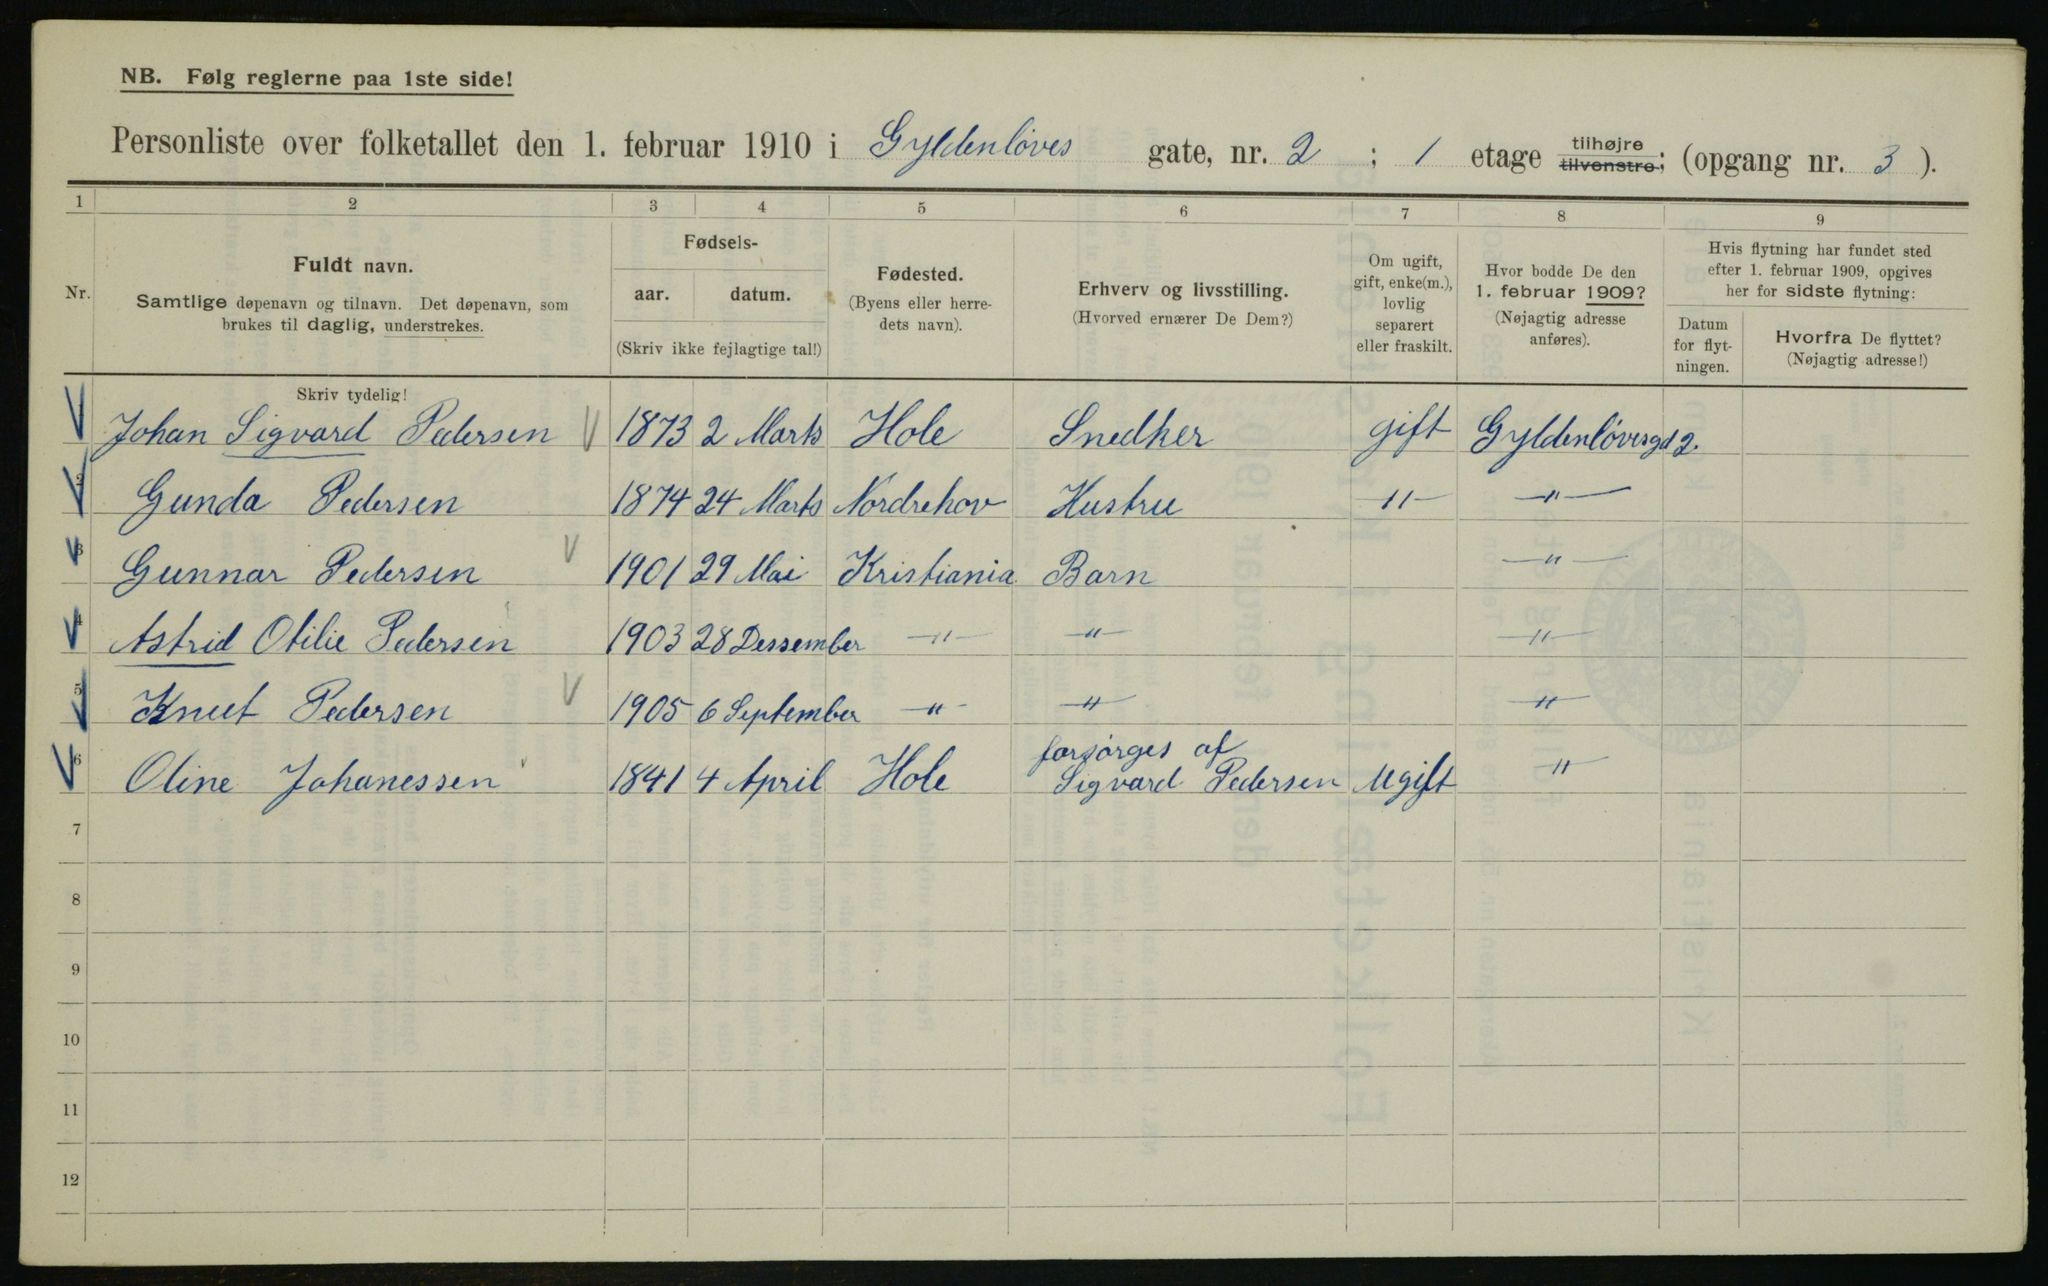 NB. Følg reglerne paa 1ste side!
Personliste over folketallet den 1. februar 1910 i Gyldenløves gate, nr. 2 ; 1 etage tilhøjre tilvenstre; (opgang nr. 3 ).
1 2 3 4 5 6 7 8 9
Nr.
Fuldt navn.
Samtlige døpenavn og tilnavn. Det døpenavn, som
brukes til daglig, understrekes.
Fødsels-
aar. datum.
(Skriv ikke fejlagtige tal!)
Fødested.
(Byens eller herre-
dets navn).
Erhverv og livsstilling.
(Hvorved ernærer De Dem?)
Om ugift,
gift, enke(m.),
lovlig
separert
eller fraskilt.
Hvor bodde De den
1. februar 1909?
(Nøjagtig adresse
anføres).
Hvis flytning har fundet sted
efter 1. februar 1909, opgives
her for sidste flytning:
Datum
for flyt-
ningen.
Hvorfra De flyttet?
(Nøjagtig adresse!)
Skriv tydelig!
1 Johan Sigvard Pedersen 1873 2 Marts Hole Snedker gift Gyldenløvesgd 2.
2 Gunda Pedersen 1874 24 Marts Nordrehov Hustru —"— —"—
3 Gunnar Pedersen 1901 29 Mai Kristiania Barn —"—
4 Astrid Otilie Pedersen 1903 28 Dessember —"— —"— —"—
5 Knut Pedersen 1905 6 September —"— —"— —"—
6 Oline Johanessen 1841 4 April Hole forsørges af Sigvard Pedersen Ugift —"—
7
8
9
10
11
12